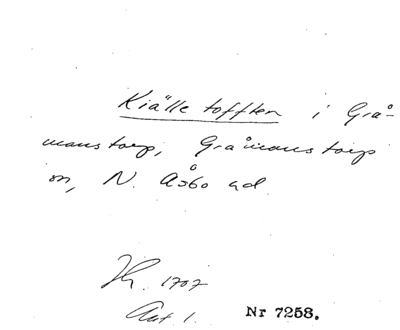 Kiälle tofften i Grå-
manstorp, Gråmanstorp
sn, N. Åsbo hd
Jb. 1707
Ant. 1. Nr 7258.